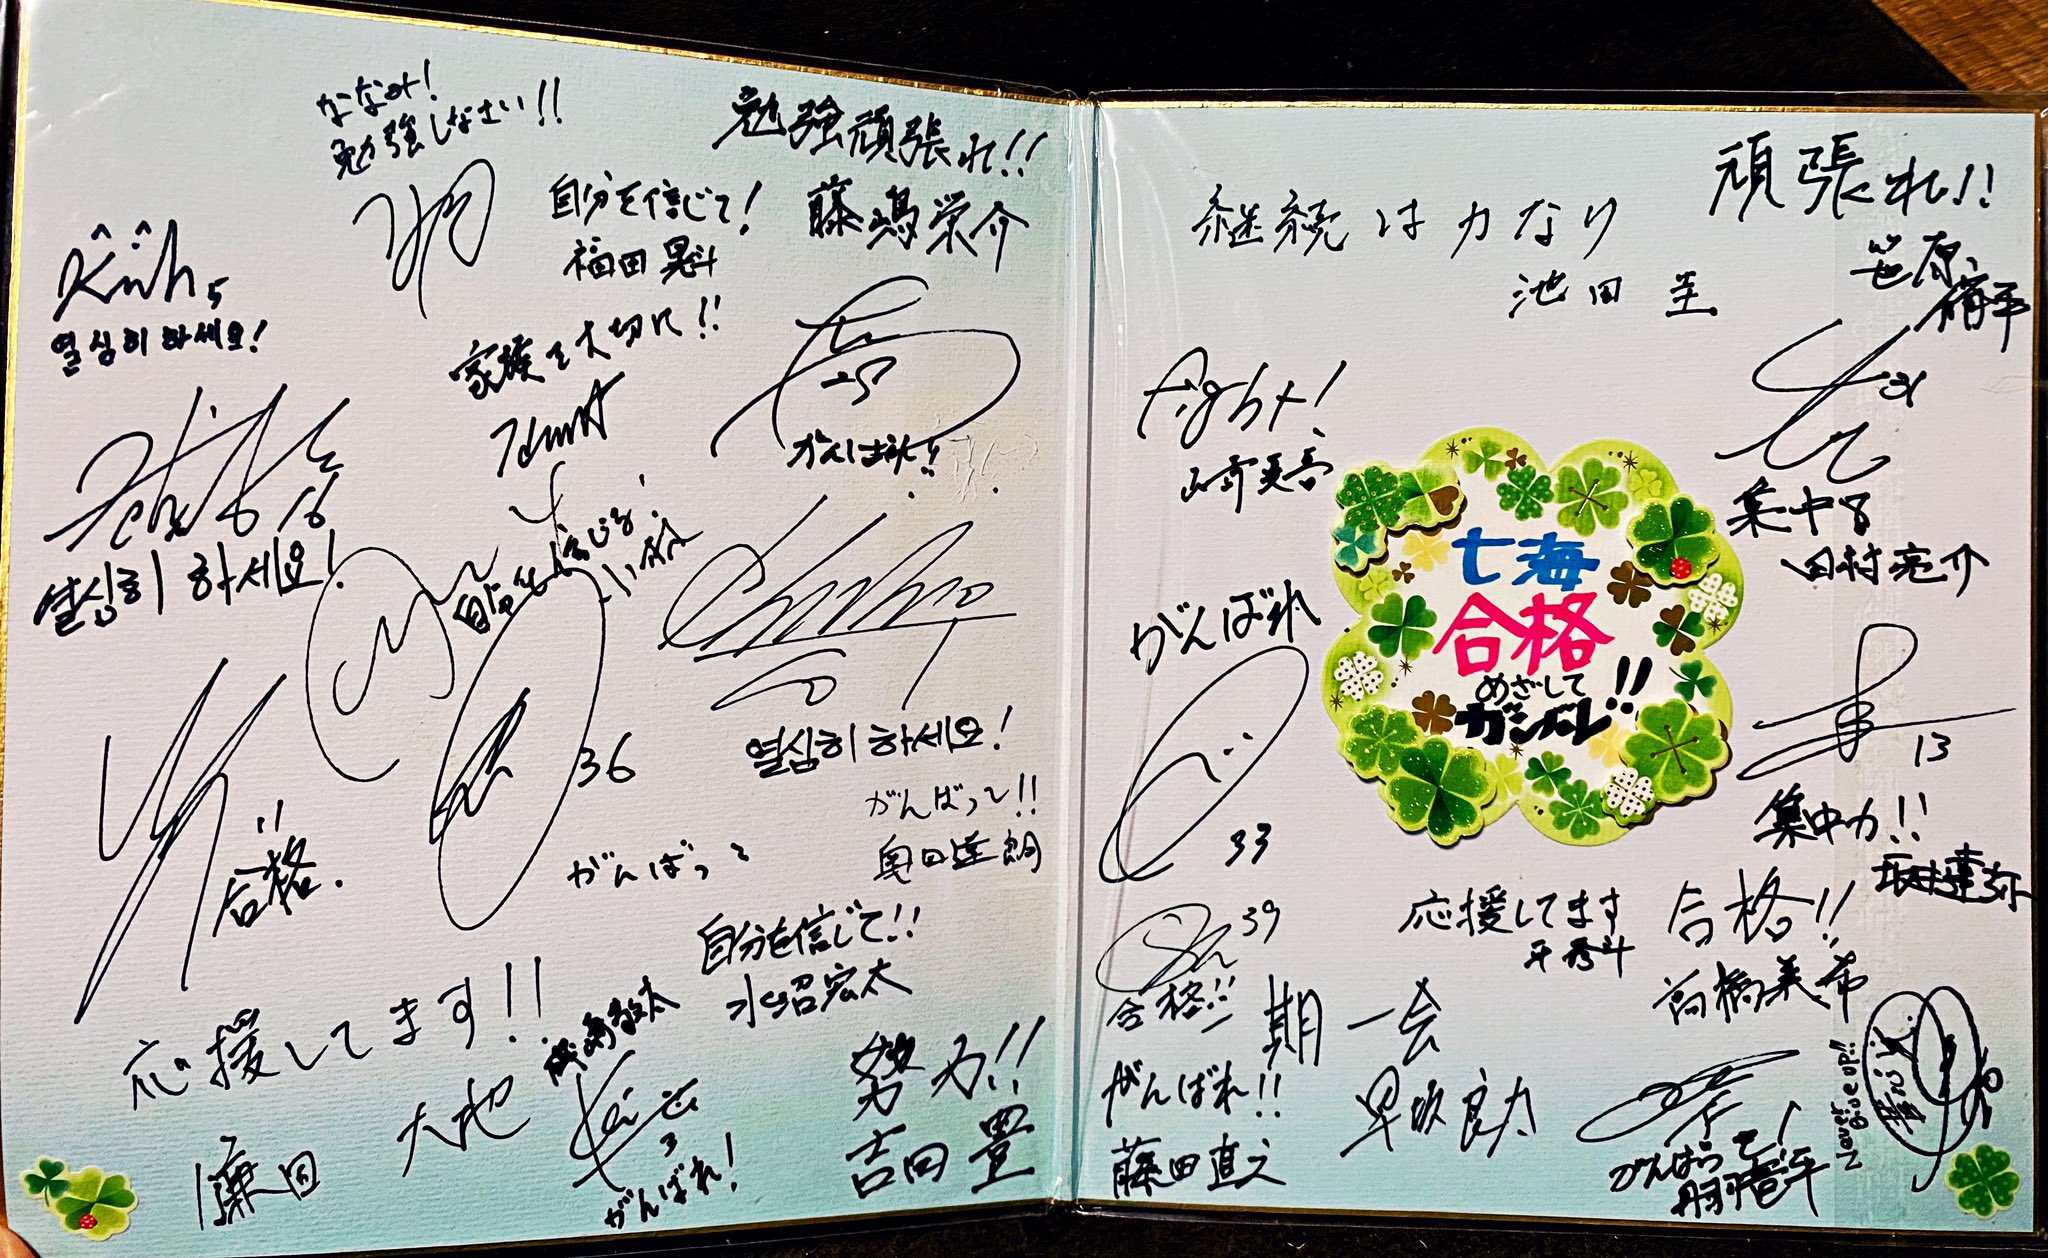 ななみ!
勉強しなさい!!
勉強頑張れ!!
藤嶋栄介
自分を信じて!
福田晃斗
열심히 하세요!
家族を大切に!!
がんばれ!!
16
열심히 하세요!
自分を信じろ!
36
合格.
열심히 하세요!
がんばって!!
奥田達朗
がんばって
自分を信じて!!
水沼宏太
応援してます!!
鎌田
大地
3
がんばれ!
努力!!
吉田豊
継続は力なり
池田圭
頑張れ!!
笹原
fight!
集中力
田村亮介
がんばれ
33
七海
合格
めざして
ガンバレ!!
13
集中力!!
応援してます
平秀斗
合格!!
高橋義希
39
合格!!
一期一会
早坂良太
がんばれ!!
藤田直之
Never
Give up!!